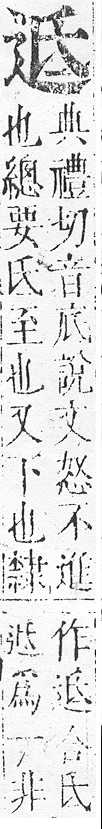 䢑
典禮切音底說文怒不進
也總要氏至也又下也隸
作䢑合氏
爲
非